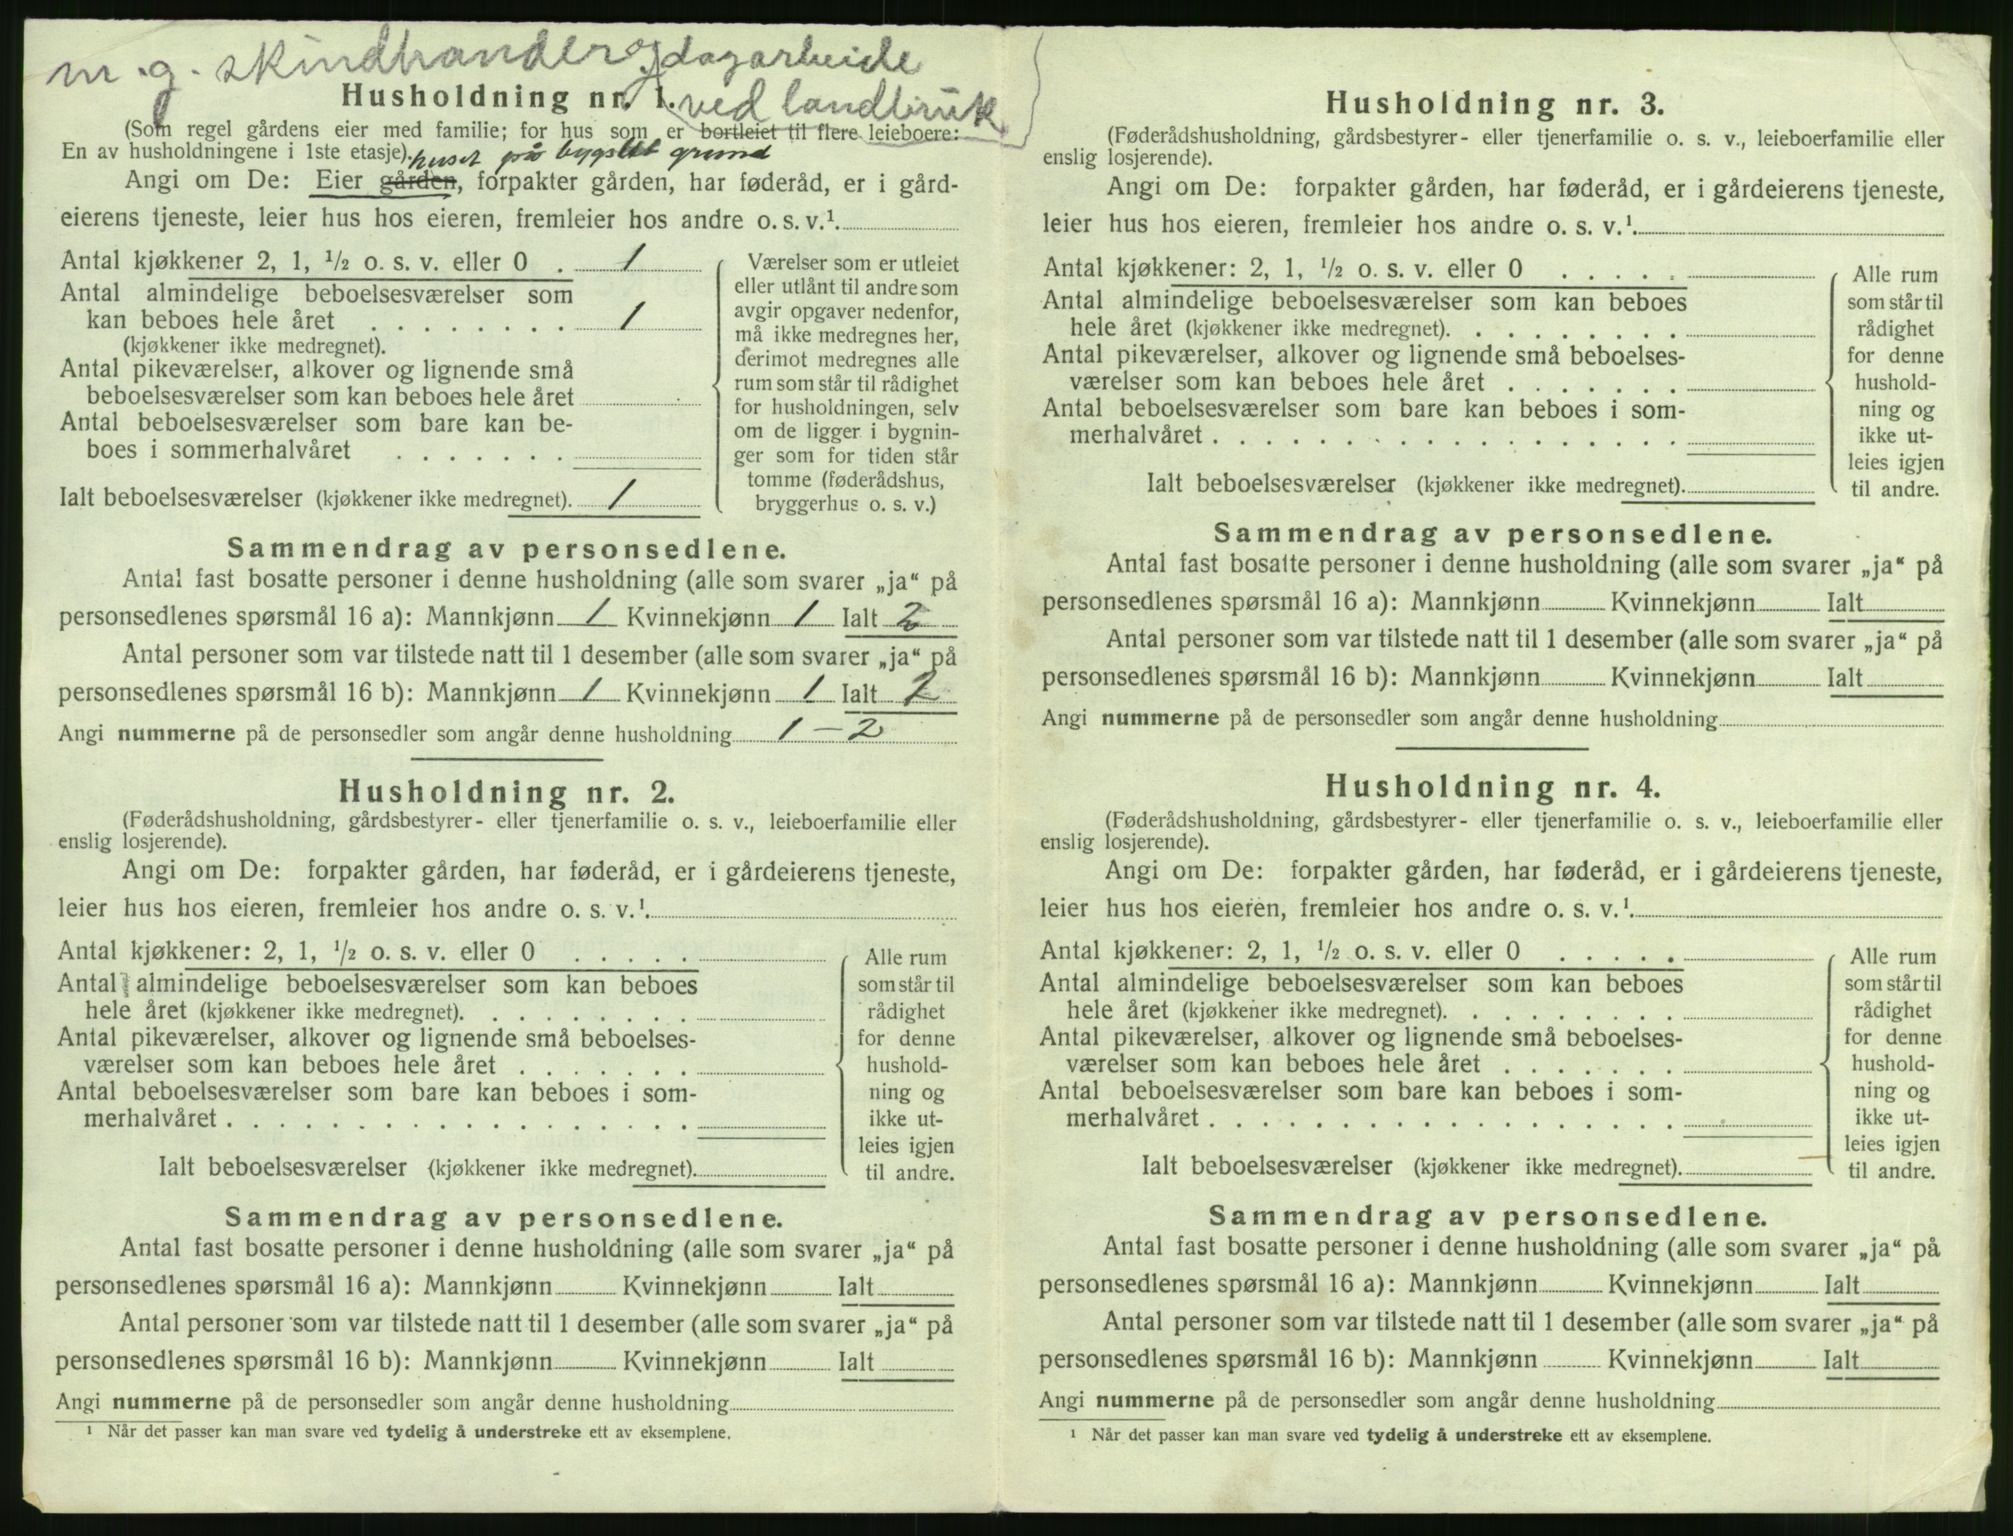 m.g. skindhander og dagarbeide
Husholdning nr. 1. ved landbruk
(Som regel gårdens eier med familie; for hus som er bortleiet til flere leieboere:
En av husholdningene i 1ste etasje). huset på bygslet grund
Angi om De: Eier gården, forpakter gården, har føderåd, er i gård-
eierens tjeneste, leier hus hos eieren, fremleier hos andre o. s. v.¹
Antal kjøkkener 2, 1, ½ o. s. v. eller 0 . 1
Antal almindelige beboelsesværelser som
kan beboes hele året . . . . . . . . 1
(kjøkkener ikke medregnet).
Antal pikeværelser, alkover og lignende små
beboelsesværelser som kan beboes hele året
Antal beboelsesværelser som bare kan be-
boes i sommerhalvåret . . . . . . .
Ialt beboelsesværelser (kjøkkener ikke medregnet). 1
Værelser som er utleiet
eller utlånt til andre som
avgir opgaver nedenfor,
må ikke medregnes her,
derimot medregnes alle
rum som står til rådighet
for husholdningen, selv
om de ligger i bygnin-
ger som for tiden står
tomme (føderådshus,
bryggerhus o. s. v.)
Sammendrag av personsedlene.
Antal fast bosatte personer i denne husholdning (alle som svarer „ja“ på
personsedlenes spørsmål 16 a): Mannkjønn 1 Kvinnekjønn 1 Ialt 2
Antal personer som var tilstede natt til 1 desember (alle som svarer „ja“ på
personsedlenes spørsmål 16 b): Mannkjønn 1 Kvinnekjønn 1 Ialt 2
Angi nummerne på de personsedler som angår denne husholdning 1 – 2
Husholdning nr. 2.
(Føderådshusholdning, gårdsbestyrer- eller tjenerfamilie o. s. v., leieboerfamilie eller
enslig losjerende).
Angi om De: forpakter gården, har føderåd, er i gårdeierens tjeneste,
leier hus hos eieren, fremleier hos andre o. s. v.¹
Antal kjøkkener: 2, 1, ½ o. s. v. eller 0 . . . . .
Antal almindelige beboelsesværelser som kan beboes
hele året (kjøkkener ikke medregnet). . . . . . . . .
Antal pikeværelser, alkover og lignende små beboelses-
værelser som kan beboes hele året . . . . . . .
Antal beboelsesværelser som bare kan beboes i som-
merhalvåret . . . . . . . . . . . . . . . . . .
Ialt beboelsesværelser (kjøkkener ikke medregnet).
Alle rum
som står til
rådighet
for denne
hushold-
ning og
ikke ut-
leies igjen
til andre.
Sammendrag av personsedlene.
Antal fast bosatte personer i denne husholdning (alle som svarer „ja“ på
personsedlenes spørsmål 16 a): Mannkjønn Kvinnekjønn Ialt
Antal personer som var tilstede natt til 1 desember (alle som svarer „ja“ på
personsedlenes spørsmål 16 b): Mannkjønn Kvinnekjønn Ialt
Angi nummerne på de personsedler som angår denne husholdning
¹ Når det passer kan man svare ved tydelig å understreke ett av eksemplene.
Husholdning nr. 3.
(Føderådshusholdning, gårdsbestyrer- eller tjenerfamilie o. s. v., leieboerfamilie eller
enslig losjerende).
Angi om De: forpakter gården, har føderåd, er i gårdeierens tjeneste,
leier hus hos eieren, fremleier hos andre o. s. v.¹
Antal kjøkkener: 2, 1, ½ o. s. v. eller 0 . . . . .
Antal almindelige beboelsesværelser som kan beboes
hele året (kjøkkener ikke medregnet). . . . . . . . .
Antal pikeværelser, alkover og lignende små beboelses-
værelser som kan beboes hele året . . . . . . .
Antal beboelsesværelser som bare kan beboes i som-
merhalvåret . . . . . . . . . . . . . . . . . .
Ialt beboelsesværelser (kjøkkener ikke medregnet).
Alle rum
som står til
rådighet
for denne
hushold-
ning og
ikke ut-
leies igjen
til andre.
Sammendrag av personsedlene.
Antal fast bosatte personer i denne husholdning (alle som svarer „ja“ på
personsedlenes spørsmål 16 a): Mannkjønn Kvinnekjønn Ialt
Antal personer som var tilstede natt til 1 desember (alle som svarer „ja“ på
personsedlenes spørsmål 16 b): Mannkjønn Kvinnekjønn Ialt
Angi nummerne på de personsedler som angår denne husholdning
Husholdning nr. 4.
(Føderådshusholdning, gårdsbestyrer- eller tjenerfamilie o. s. v., leieboerfamilie eller
enslig losjerende).
Angi om De: forpakter gården, har føderåd, er i gårdeierens tjeneste,
leier hus hos eieren, fremleier hos andre o. s. v.¹
Antal kjøkkener: 2, 1, ½ o. s. v. eller 0 . . . . .
Antal almindelige beboelsesværelser som kan beboes
hele året (kjøkkener ikke medregnet). . . . . . . . .
Antal pikeværelser, alkover og lignende små beboelses-
værelser som kan beboes hele året . . . . . . .
Antal beboelsesværelser som bare kan beboes i som-
merhalvåret . . . . . . . . . . . . . . . . . .
Ialt beboelsesværelser (kjøkkener ikke medregnet).
Alle rum
som står til
rådighet
for denne
hushold-
ning og
ikke ut-
leies igjen
til andre.
Sammendrag av personsedlene.
Antal fast bosatte personer i denne husholdning (alle som svarer „ja“ på
personsedlenes spørsmål 16 a): Mannkjønn Kvinnekjønn Ialt
Antal personer som var tilstede natt til 1 desember (alle som svarer „ja“ på
personsedlenes spørsmål 16 b): Mannkjønn Kvinnekjønn Ialt
Angi nummerne på de personsedler som angår denne husholdning
¹ Når det passer kan man svare ved tydelig å understreke ett av eksemplene.